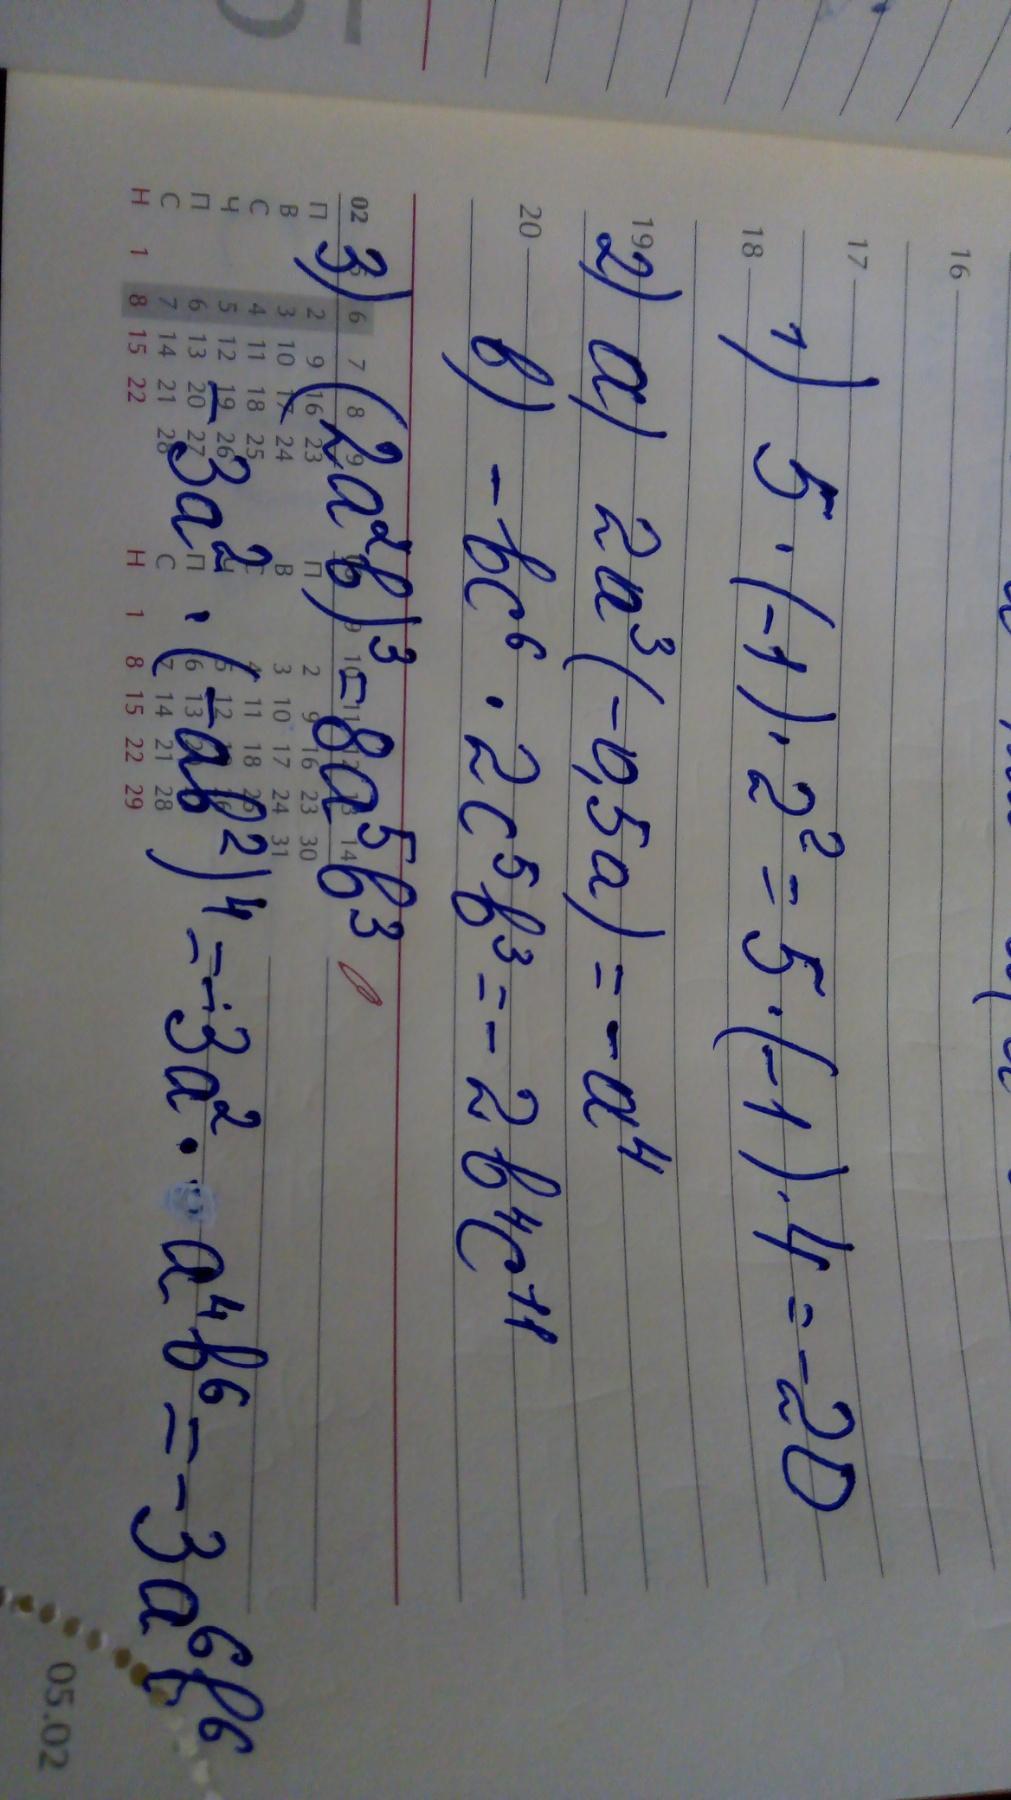 16
17
18
1) 5 · (-1) · 2² = 5 · (-1) · 4 = -20
19
2) а) 2a³(-0,5a) = -a⁴
20
в) -bc⁶ · 2c⁵b³ = -2b⁴c¹¹
3) (2a²b)³ = 8a⁵b³
-3a² · (-ab²)⁴ = -3a² · a⁴b⁶ = -3a⁶b⁶
02 6 7 8 9
П 2 9 16 23
В 3 10 17 24
С 4 11 18 25
Ч 5 12 19 26
П 6 13 20 27
С 7 14 21 28
Н 1 8 15 22
9 10 11 12 13 14
П 2 9 16 23 30
В 3 10 17 24 31
С 4 11 18 25
Ч 5 12
П 6 13
С 7 14 21 28
Н 1 8 15 22 29
05.02